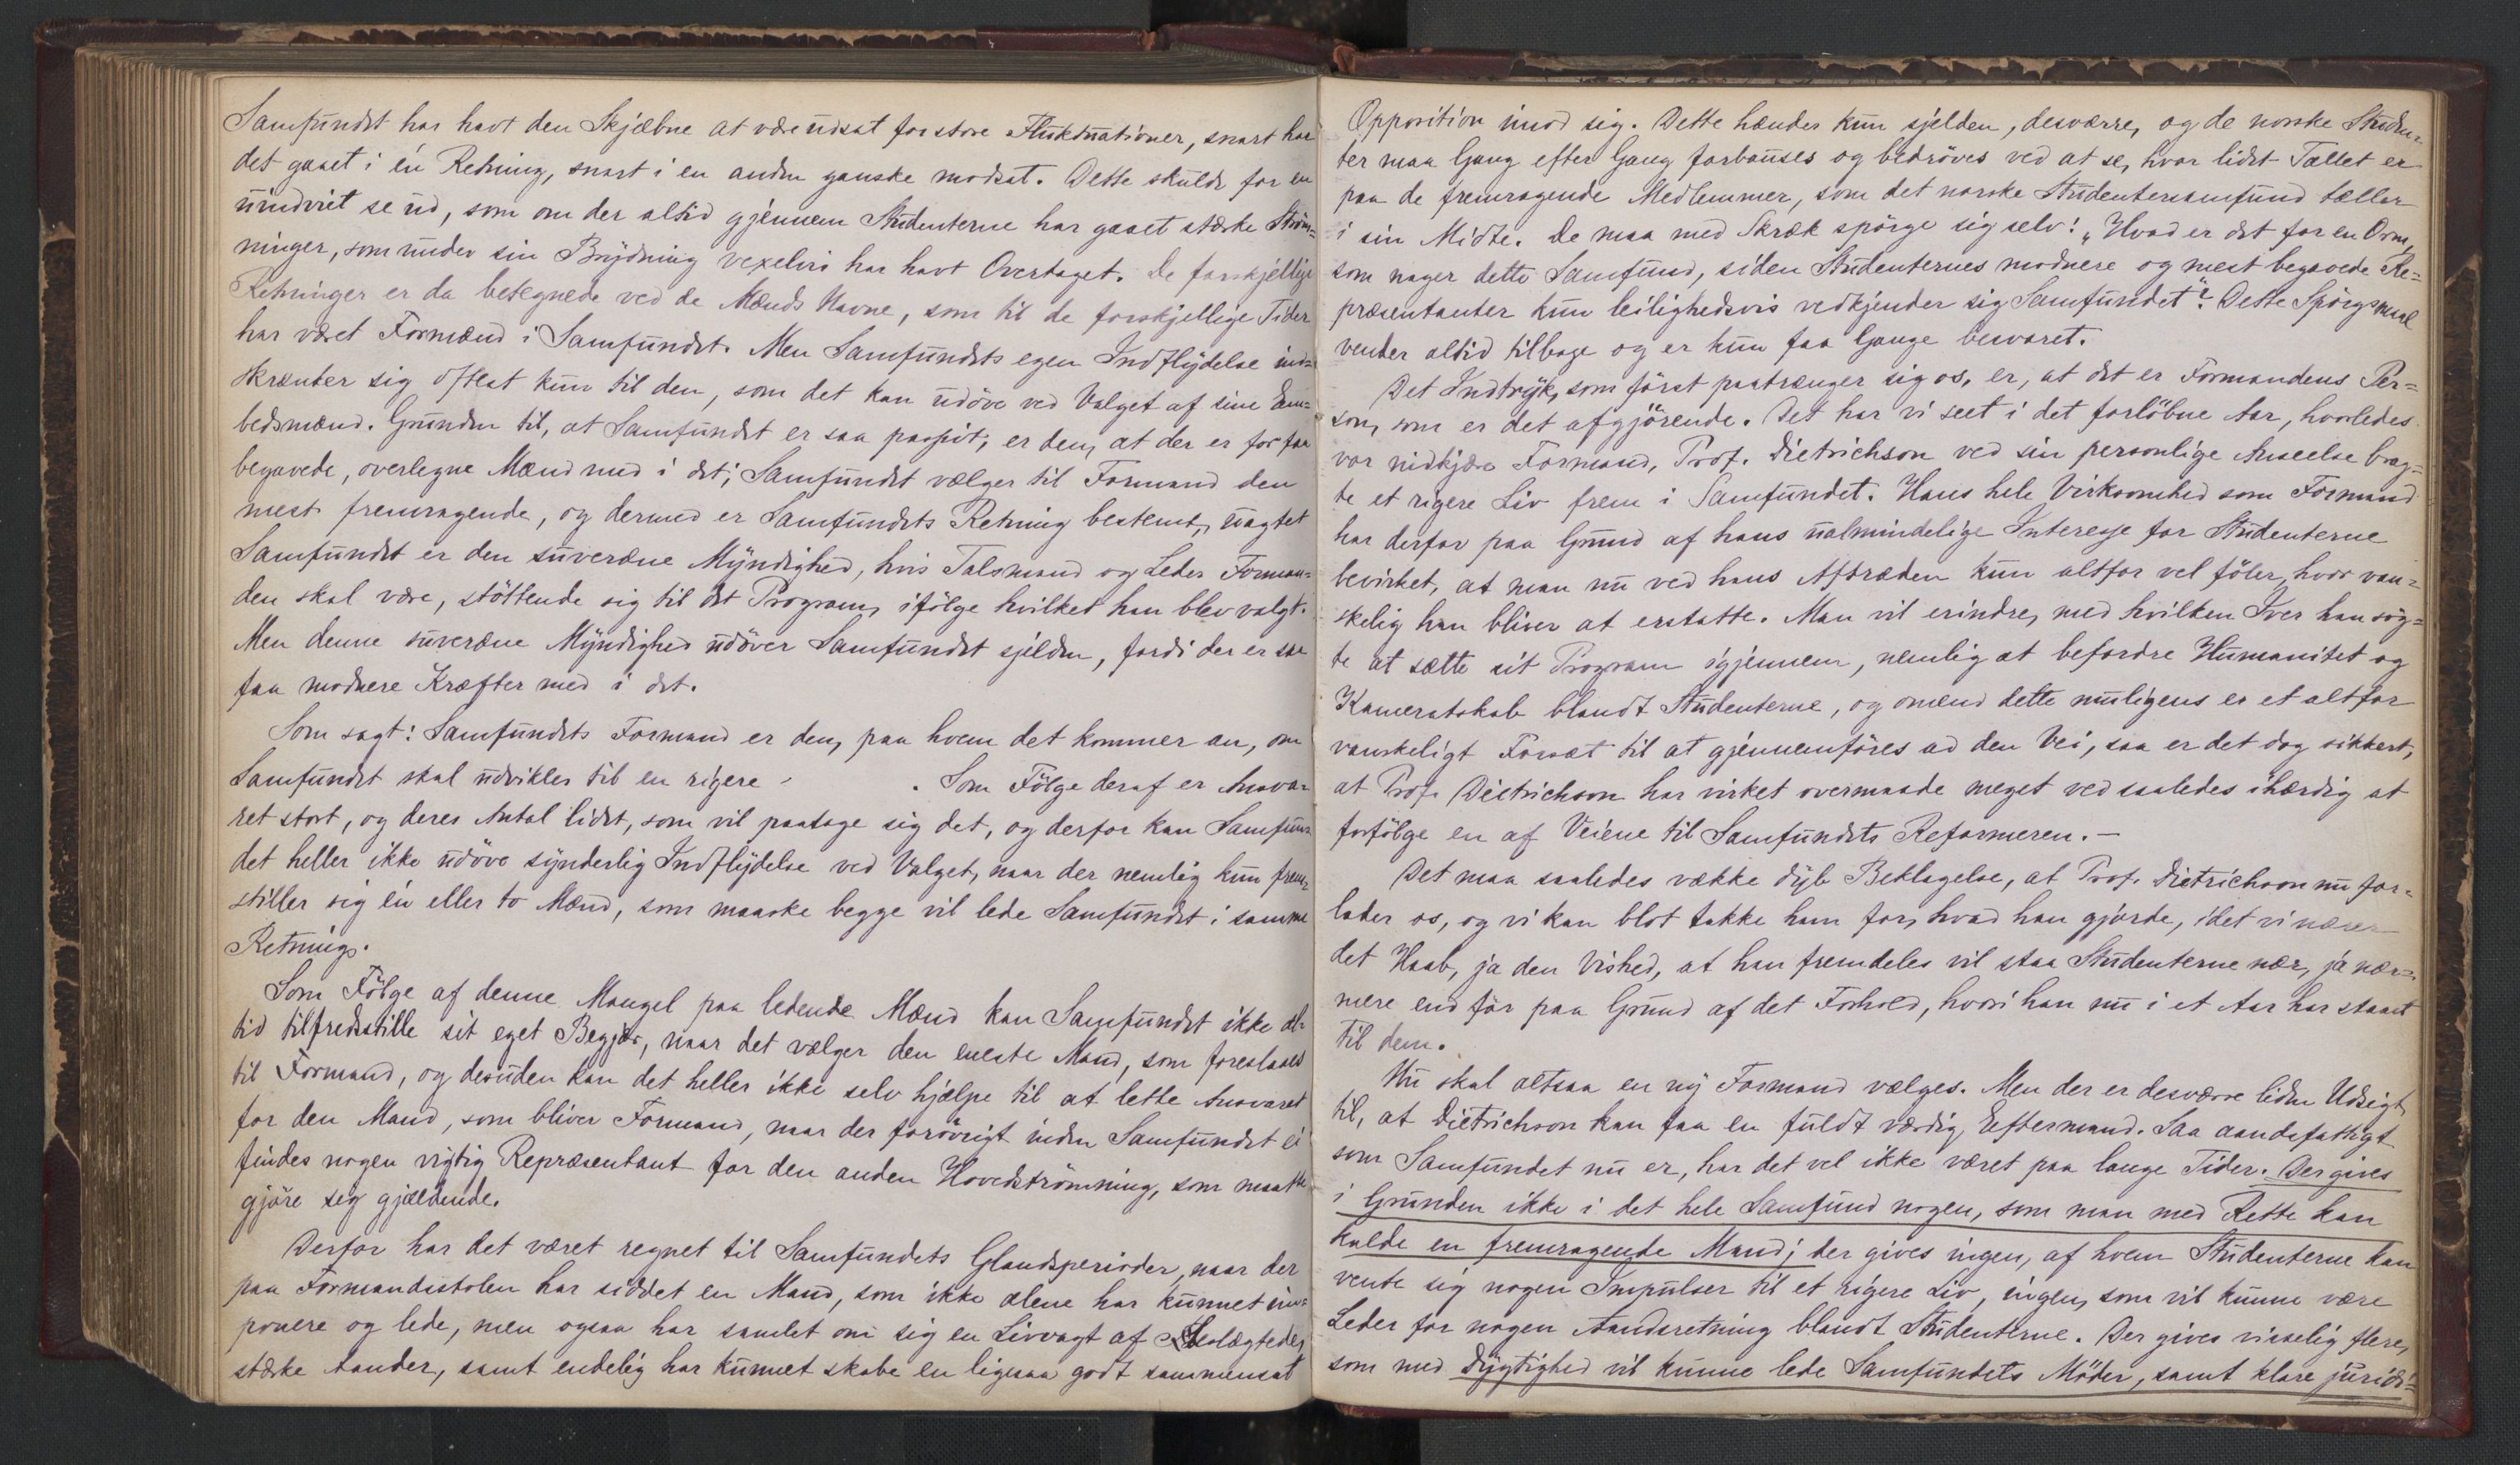 Samfundet har havt den Skjæbne at være udsat for store Fluktuationer, snart har
det gaaet i én Retning, snart i en anden ganske modsat. Dette skulde for en
uindviet se ud, som om der altid gjennem Studenterne har gaaet stærke Strøm-
ninger, som under sin Brydning vexelvis har havt Overtaget. De forskjellige
Retninger er da betegnede ved de Mænds Navne, som til de forskjellige Tider
har været Formænd i Samfundet. Men Samfundets egen Indflydelse ind-
skrænker sig oftest kun til den, som det kan udöve ved Valget af sine Em-
bedsmænd. Grunden til, at Samfundet er saa passivt, er den, at der er for faa
begavede, overlegne Mænd med i det; Samfundet vælger til Formand den
mest fremragende, og dermed er Samfundets Retning bestemt, uagtet
Samfundet er den suveræne Myndighed, hvis Talsmand og Leder Forman-
den skal være, stöttende sig til det Program, ifölge hvilket han blev valgt.
Men denne suveræne Myndighed udöver Samfundet sjelden, fordi der er saa
faa modnere Kræfter med i det.
Som sagt: Samfundets Formand er den, paa hvem det kommer an, om
Samfundet skal udvikles til en rigere . Som Fölge deraf er Ansva-
ret stort, og deres Antal lidet, som vil paatage sig det, og derfor kan Samfun-
det heller ikke udöve synderlig Indflydelse ved Valget, naar der nemlig kun frem-
stiller sig én eller to Mænd, som maaske begge vil lede Samfundet i samme
Retning.
Som Fölge af denne Mangel paa ledende Mænd kan Samfundet ikke al-
tid tilfredsstille sit eget Begjær, naar det vælger den eneste Mand, som foreslaaes
til Formand, og desuden kan det heller ikke selv hjælpe til at lette Ansvaret
for den Mand, som bliver Formand, naar der forövrigt inden Samfundet ei
findes nogen vigtig Repræsentant for den anden Hovedströmning, som maatte
gjöre sig gjældende.
Derfor har det været regnet til Samfundets Glandsperioder, naar der
paa Formandsstolen har siddet en Mand, som ikke alene har kunnet im-
ponere og lede, men ogsaa har samlet om sig en Livvagt af beslægtede,
stærke Aander, samt endelig har kunnet skabe en ligesaa godt sammensat
Opposition imod sig. Dette hænder kun sjelden, desværre, og de norske Studen-
ter maa Gang efter Gang forbauses og bedröves ved at se, hvor lidet Tallet er
paa de fremragende Medlemmer, som det norske Studentersamfund tæller
i sin Midte. De maa med Skræk spörge sig selv: "Hvad er det for en Orm,
som nager dette Samfund, siden Studenternes modnere og mest begavede Re-
præsentanter kun leilighedsvis vedkjender sig Samfundet"? Dette Spörgsmaal
vender altid tilbage og er kun faa Gange besvaret.
Det Indtryk, som först paatrænger sig os, er, at det er Formandens Per-
son, som er det afgjörende. Det har vi seet i det forlöbne Aar, hvorledes
vor nidkjære Formand, Prof. Dietrichson ved sin personlige Anseelse brag-
te et rigere Liv frem i Samfundet. Hans hele Virksomhed som Formand
har derfor paa Grund af hans ualmindelige Interesse for Studenterne
bevirket, at man nu ved hans Aftræden kun altfor vel föler, hvor van-
skelig han bliver at erstatte. Man vil erindre, med hvilken Iver han sög-
te at sætte sit Program igjennem, nemlig at befordre Humanitet og
Kameratskab blandt Studenterne, og omend dette muligens er et altfor
vanskeligt Forsæt til at gjennemföres ad den Vei, saa er det dog sikkert,
at Prof. Dietrichson har virket overmaade meget ved saaledes ihærdig at
forfölge en af Veiene til Samfundets Reformeren.—
Det maa saaledes vække dyb Beklagelse, at Prof. Dietrichson nu for-
lader os, og vi kan blot takke ham for, hvad han gjorde, idet vi nærer
det Haab, ja den Vished, at han fremdeles vil staa Studenterne nær, ja nær-
mere end för paa Grund af det Forhold, hvori han nu i et Aar har staaet
til dem.
Nu skal altsaa en ny Formand vælges. Men der er desværre liden Udsigt
til, at Dietrichson kan faa en fuldt værdig Eftermand. Saa aandsfattigt
som Samfundet nu er, har det vel ikke været paa lange Tider. Der gives
i Grunden ikke i det hele Samfund nogen, som man med Rette kan
kalde en fremragende Mand; der gives ingen, af hvem Studenterne kan
vente sig nogen Impulser til et rigere Liv, ingen, som vil kunne være
Leder for nogen Aandsretning blandt Studenterne. Der gives visselig flere,
som med Dygtighed vil kunne lede Samfundets Möder, samt klare juridi-